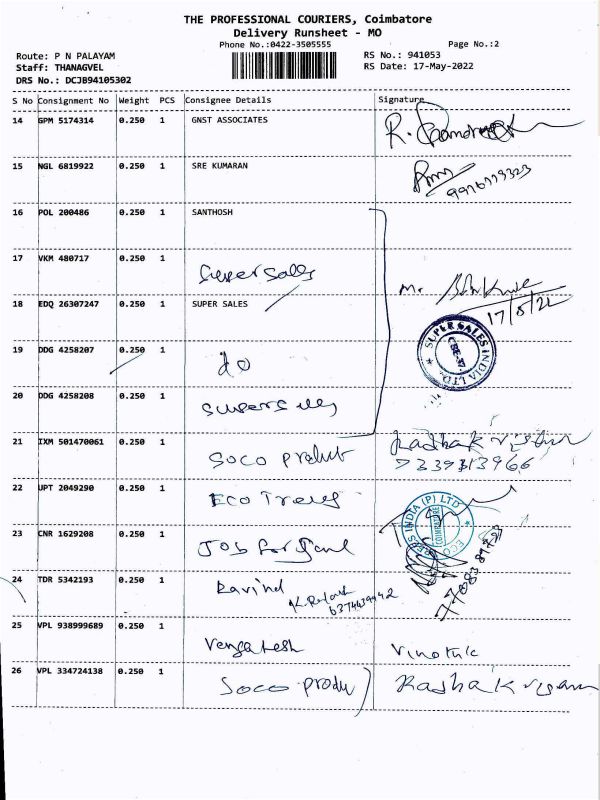 THE PROFESSIONAL COURIERS, Coimbatore
Delivery Runsheet - MO
Phone No.:0422-3505555
Page No.:2
Route: P N PALAYAM
RS No.: 941053
Staff: THANAGVEL
RS Date: 17-May-2022
DRS No.: DCJB94105302
S No Consignment No Weight PCS Consignee Details Signature
14 GPM 5174314 0.250 1 GNST ASSOCIATES
15 NGL 6819922 0.250 1 SRE KUMARAN
16 POL 200486 0.250 1 SANTHOSH
17 VKM 480717 0.250 1 Super Sales
18 EDQ 26307247 0.250 1 SUPER SALES
17/5/22
SUPER SALES INDIA LTD.
CBE-37
19 DDG 4258207 0.250 1 do
20 DDG 4258208 0.250 1
21 IXM 501470061 0.250 1 Soco Radhakrishnan
7339313966
22 UPT 2049290 0.250 1 Eco
INDIA (P) LTD
COIMBATORE
ECO
23 CNR 1629208 0.250 1 Job
24 TDR 5342193 0.250 1 Ravind
25 VPL 938999689 0.250 1 Vengatesh
26 VPL 334724138 0.250 1 Soco produ